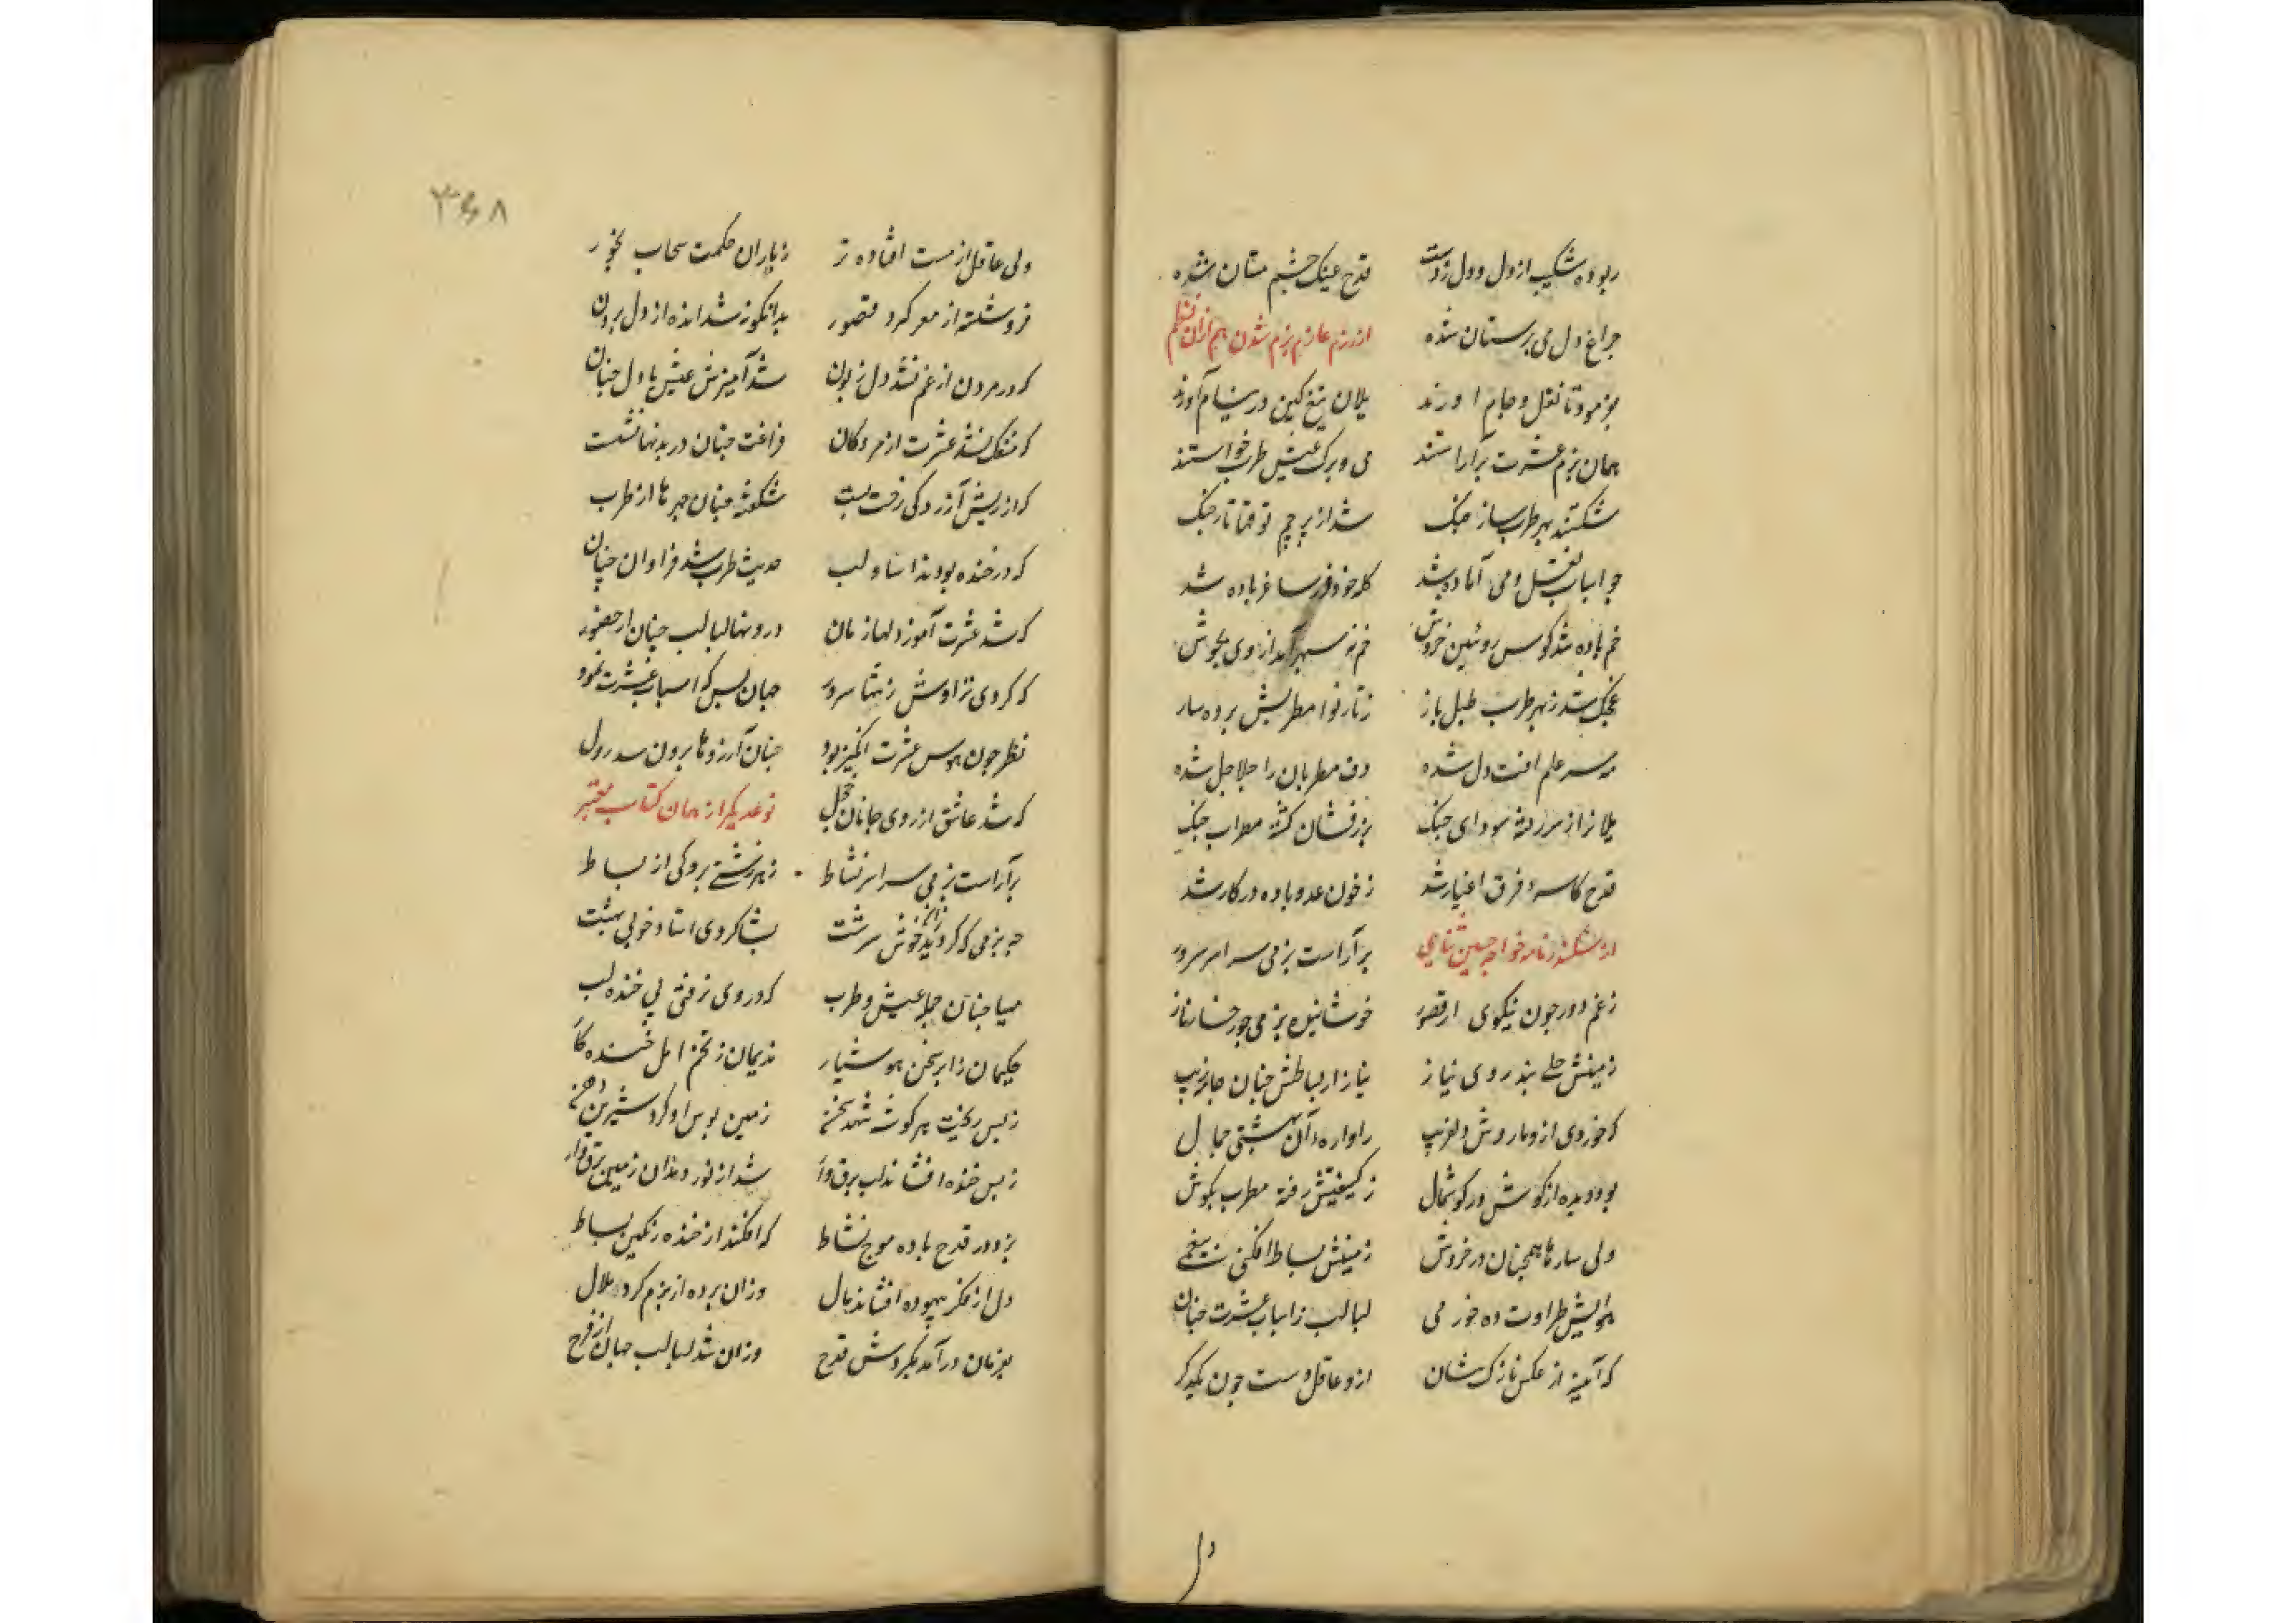 ربوده شکیب از دل و دل ز دست قدح عینک چشم مستان شده
چراغ دل می پرستان شده از رزم عازم بزم شدن هم ازان نظم
بفرمود تا نقل و جام آورند یلان تیغ کین در نیام آورند
همان بزم عشرت برآراستند می و برک عیش و طرب خواستند
شکستند بهر طرب ساز جنک شد از پرچم تارجنک
چو اسباب نقل و می آماده شد کله خود ساغر باده شد
خم باده شد کوس روئین خروش خم نه سپهر آمد از وی بجوش
طرب طبل باز ز تار نوا مطربش برده ساز
مه سر علم افت دل شده دف مطربان را جلاجل شده
یلانرا ز سر رفته سودای جنک کشته مضراب چنک
قدح کاسه فرق اغیار شد ز خون عدو باده در کار شد
از سکندرنامه خواجه حسین ثنایی برآراست بزمی سراسر سرور
ز غم دور چون نیکوی از قصور خوشا بزمی چو رخسار ناز
زمینش بروی نیاز نیاز از بساطش چنان
که خوردی ازو دلفریب بهشتی جمال
بود دیده از کوش در کوشمال ز کیفیتش رفته مطرب بکوش
ولی سازها همچنان در خروش زمینش بساط افکنی
هوایش طراوت ده خور می لبالب ز اسباب عشرت چنان
که آینه از عکس نازک‌شان ازو عاقل و مست چون یکدکر
دل
۳۶۸
ولی عاقل از مست افتاده تر ز باران حکمت سحاب بخور
فروشسته از مغز کرد قصور بدانکونه شد انده از دل برون
که در مردن از غم نشد دل زبون شد آمیزش عیش با دل چنان
که منفک نشد عشرت از مردکان فراغت چنان در بدنها نشست
که از ریش آزردکی رخت بست شکفته چنان چهرها از طرب
که در خنده بودند لب حدیث طرب شد فراوان چنان
که شد عشرت آموز دلها زمان درونها لبالب چنان از حضور
که کردی تراوش ز تنها سرور جهان بس که اسباب عشرت نمود
نظر چون هوس عشرت انکیز بود چنان آرزوها برون شد ز دل
که شد عاشق از روی جانان خجل نوع دیکر از همان کتاب معتبر
برآراست بزمی سراسر نشاط ز هر زشتیی از بساط
چه بزمی که کردند خوش سرشت بشاکردی استاد خوبی بهشت
مهیا چنان جمله عیش و طرب که در وی نرفتی پی خنده لب
حکیمان را بر سخن هوشیار ندیمان ز تخم امل خنده کار
ز بس ریخت هر کوشه شهد سخن زمین بوس او کرد شیرین دهن
ز بس خنده افشاند لب برق وار شد از نور دندان زمین برق زار
بزد در قدح باده موج نشاط که افکند از خنده رنکین بساط
دل از فکر بیهوده افشاند بال وزان برده از بزم کرد ملال
بزمان در آمد بکردش قدح وزان شد لبالب جهان از فرح